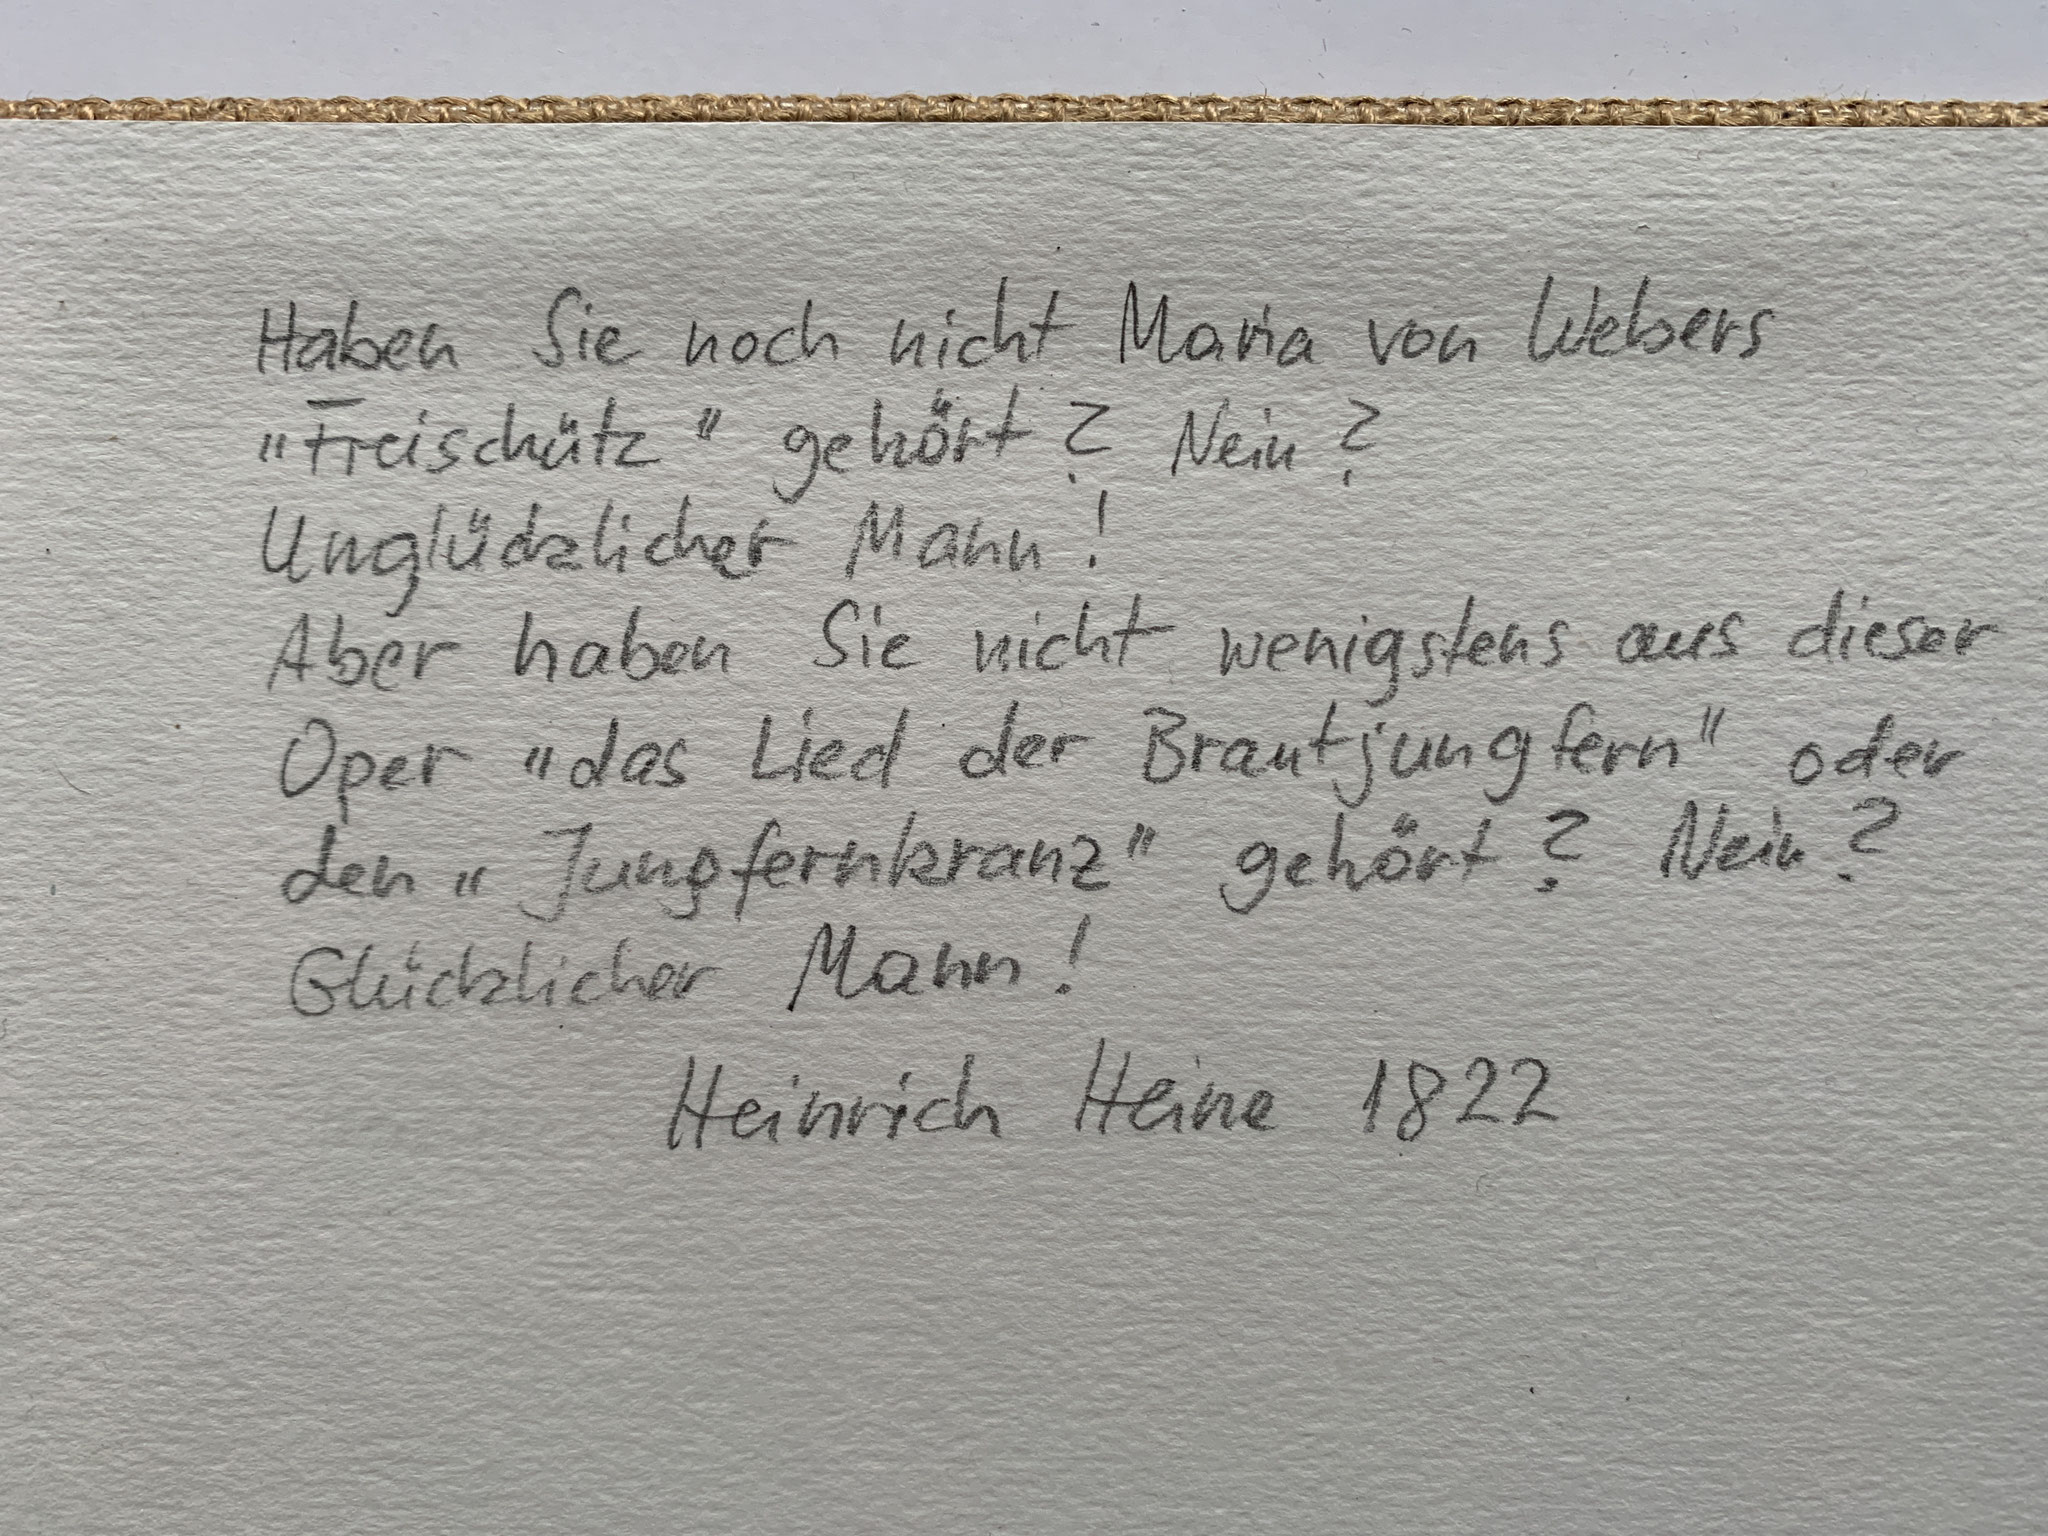 Haben Sie noch nicht Maria von Webers
"Freischütz" gehört? Nein?
Unglücklicher Mann!
Aber haben Sie nicht wenigstens aus dieser
Oper "das Lied der Brautjungfern" oder
den "Jungfernkranz" gehört? Nein?
Glücklicher Mann!
Heinrich Heine 1822